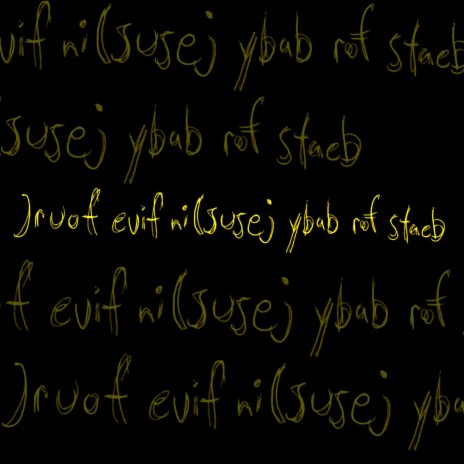 evif ni(susej ybab rof staeb
(susej ybab rof staeb
)ruof evif ni(susej ybab rof staeb
f evif ni(susej ybab rof
)ruof evif ni(susej yba